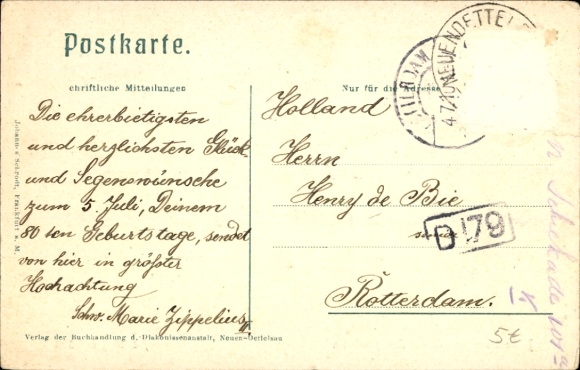 Postkarte.
schriftliche Mitteilungen
Nur für die Adresse
Die ehrerbietigsten
und herzlichsten Glück-
und Segenswünsche
zum 5. Juli, Deinem
80 ten Geburtstage, sendet
von hier in größter
Hochachtung
Schw. Marie Zippelius
Holland
Herrn
Henry de Bie
Rotterdam.
D 179
NEUENDETTELS
5€
Schiekade 101a
Verlag der Buchhandlung d. Diakonissenanstalt, Neuen-Dettelsau